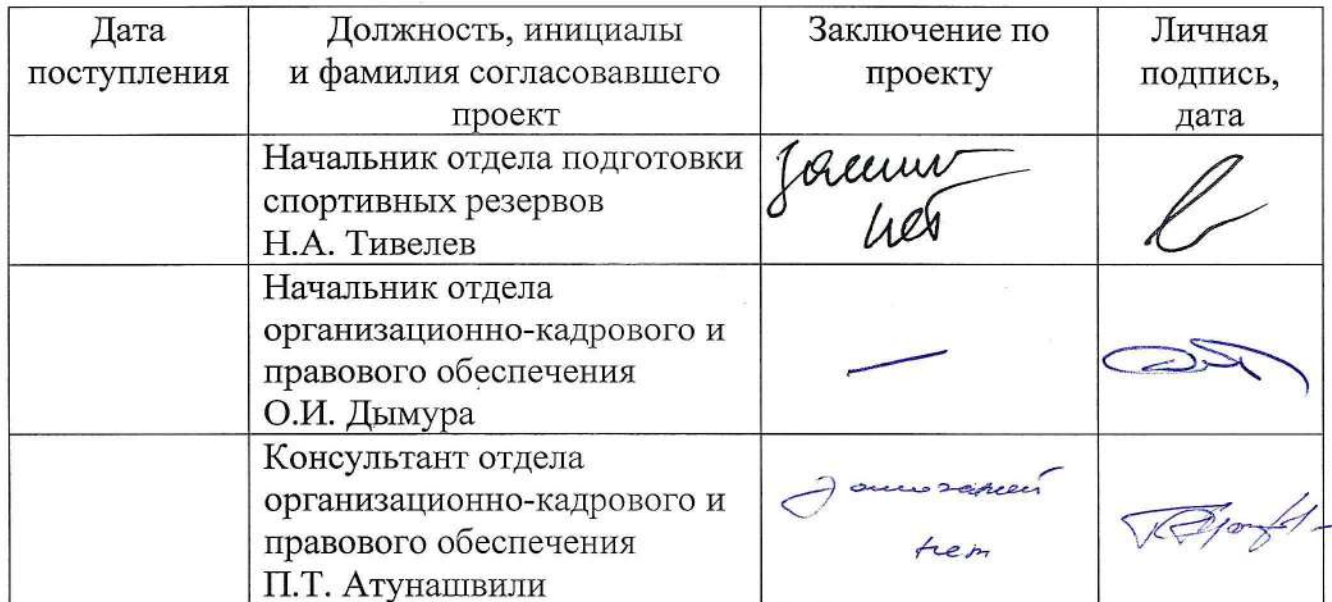 Дата
поступления
Должность, инициалы
и фамилия согласовавшего
проект
Заключение по
проекту
Личная
подпись,
дата
Начальник отдела подготовки
спортивных резервов
Н.А. Тивелев
нет
Начальник отдела
организационно-кадрового и
правового обеспечения
О.И. Дымура
—
Консультант отдела
организационно-кадрового и
правового обеспечения
П.Т. Атунашвили
замечаний
нет